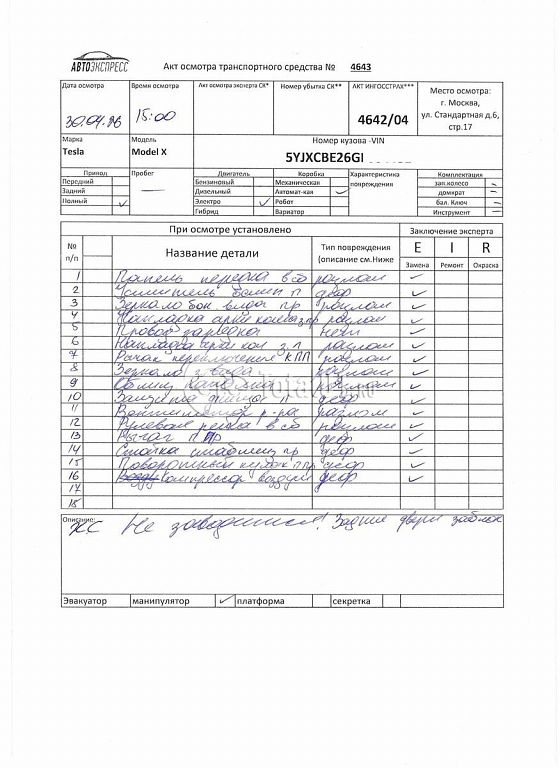 АВТОЭКСПРЕСС
Акт осмотра транспортного средства № 4643
Дата осмотра
Время осмотра
Акт осмотра эксперта СК*
Номер убытка СК**
АКТ ИНГОССТРАХ***
Место осмотра:
15:00
4642/04
г. Москва,
ул. Стандартная д.6,
стр.17
Марка
Модель
Номер кузова -VIN
Tesla
Model X
5YJXCBE26GI
Привод
Пробег
Двигатель
Коробка
Характеристика повреждения
Комплектация
Передний
Бензиновый
Механическая
зап.колесо
Задний
Дизельный
Автомат-кая
домкрат
Полный
Электро
Робот
бал. Ключ
Гибрид
Вариатор
Инструмент
При осмотре установлено
Заключение эксперта
№ п/п
Название детали
Тип повреждения
(описание см.Ниже
E I R
Замена Ремонт Окраска
1 Панель передка в сб разлом
2 Усилитель п деф
3 Зеркало бок вида пр разлом
4 Накладка арки пр разлом
5 Провод зарядки нети
6 Накладка арки кол з.л разлом
7 Рычаг переключения КПП разлом
8 Зеркало з вида разлом
9 разлом
10 Защита днища п деф
11 Вентилятор р-ра разлом
12 Рулевая рейка в сб разлом
13 Рычаг п пр деф
14 Стойка стабилиз пр деф
15 Поворотный кулак п пр деф
16 компрессор воздуш деф
17
18
Описание:
Не заводится! Задние двери заблок
Эвакуатор манипулятор платформа секретка